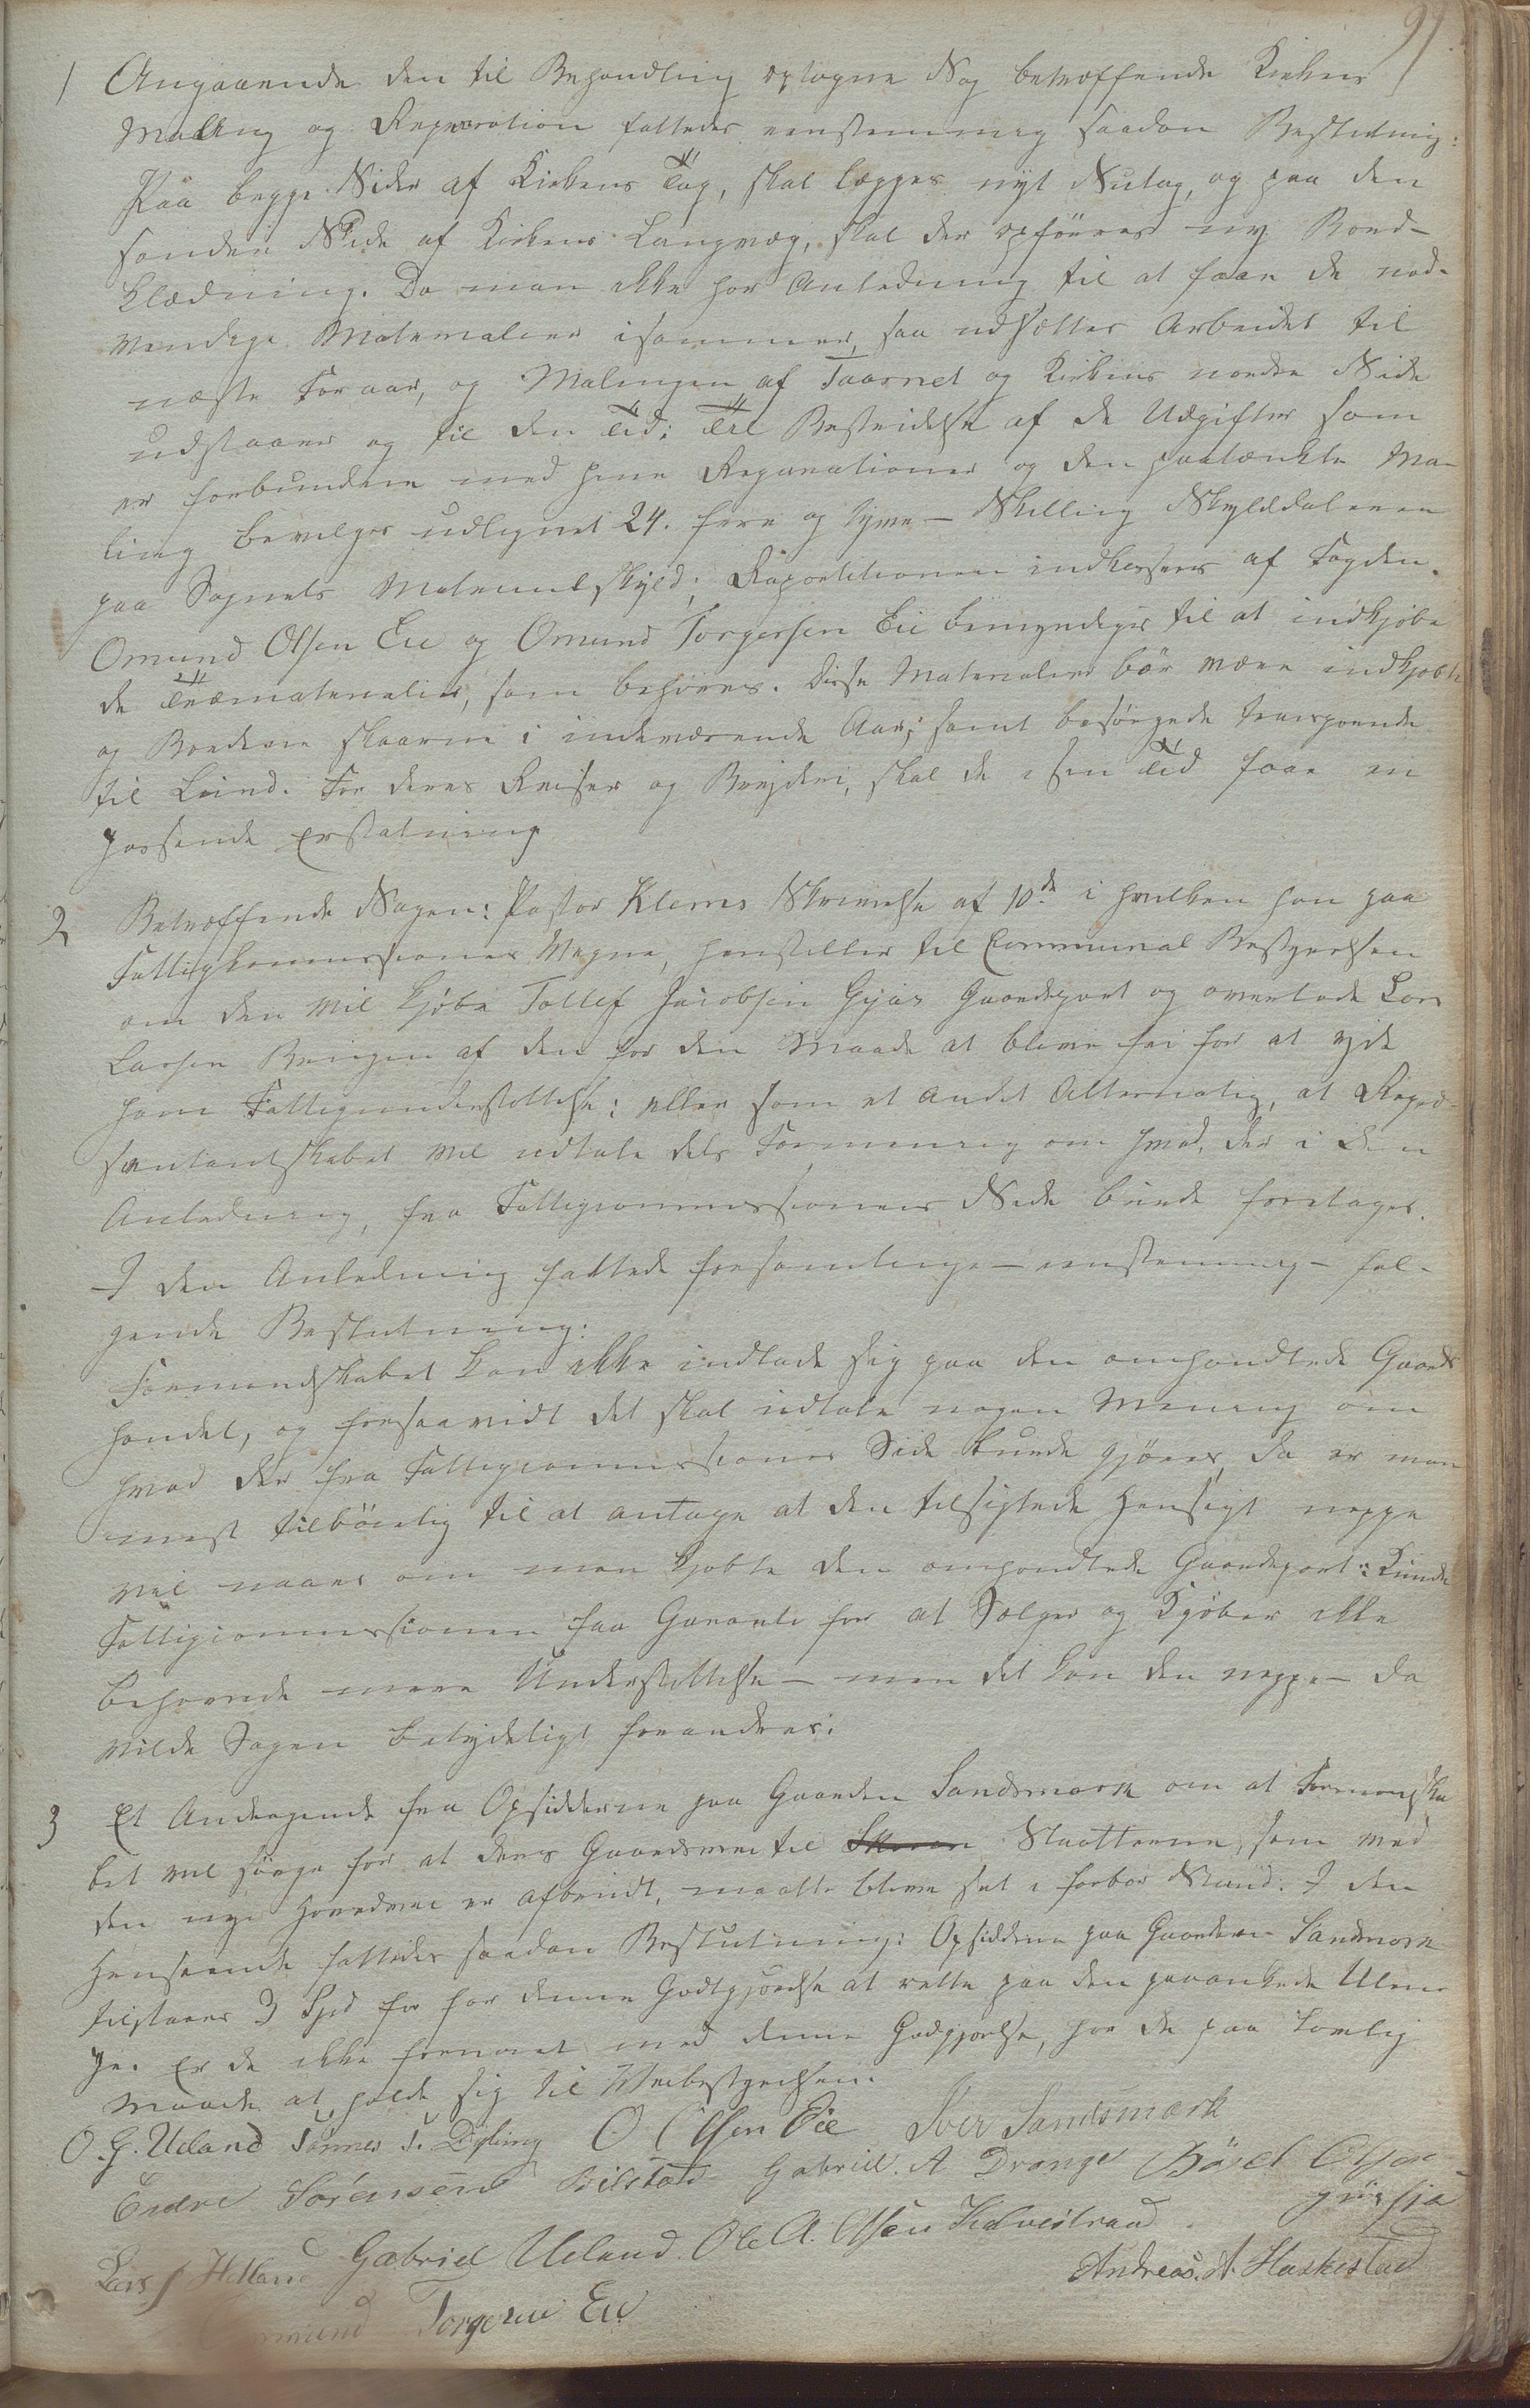 97.
1 Angaaende den til Behandling optagne Sag betræffende Kirkens
Maling og Reparation fattedes eenstemmig saadan Beslutning:
Paa begge Sider af Kirkens Tag, skal lægges nyt Sutag, og paa den
søndre Side af Kirkens Langvæg, skal der opføres ny Bord-
klædning. Da man ikke har Anledning til at faae de nød-
vendige Materialier isommer, saa udsættes Arbeidet til
næste Foraar, og Malingen af Taarnet og Kirkens nordre Side
udstaaer og til den Tid; Til Bestridelse af de Udgifter som
er forbundne med hine Reparationer og den paatænkte Ma-
ling bevilges udlignet 24. fire og tyve – Skilling Skylddaleren
paa Sognets Matrikulskyld; Repartitionen indkasseres af Fogden.
Omund Olsen Eie og Omund Torgersen Eie bemyndiges til at indkjøbe
de Træmaterialier, som behøves. Disse Materialier bør være indkjøbte
og Bordene skaarne i indeværende Aar; samt besørgede transporerede
til Lund. For deres Reiser og Bryderi, skal de i sin Tid faae en
passende Erstatning
2 Betræffende Sagen: Pastor Klems Skrivelse af 10de i hvilken han paa
Fattigkommissionens Vegne, henstiller til Communal Bestyrelsen
om den vil kjøbe Tollef Jacobsen Gyas Gaardepart og overlade Lars
Larsen Brugen af den for den Maade at blive fri for at yde
ham Fattigunderstøttelse: eller som et andet Alternativ, at Repræ-
sentantskabet vil udtale dets Formening om hvad, der i den
Anledning, fra Fattigcommissionens Side burde foretages.
I den Anledning fattede forsamlinge – eenstemmig – føl-
gende Beslutning:
Formandskabet kan ikke indlade sig paa den omhandlede Gaards
handel, og forsaavidt det skal udtale nogen Mening om
hvad der fra Fattigcommissionens Side burde gjøres, da er man
mest tilbøielig til at antage at den tilsigtede Hensigt neppe
vil naaes om man kjøbte den omhandlede Gaardepart: Kunde
Fattigcommissionen faa Garanti for at Sælger og Kjøber ikke
behøvede mere Understøttelse – men det kan den neppe – da
vilde Sagen betydeligt forandres.
3 Et Andragende fra Opsidderne paa Gaarden Sandsmark om at Formandska
bet vil sørge for at deres Gaardsvei til Slaatterne, som ved
den nye Hovedvei er afbrudt, maatte blive sat i farbar Stand. I den
Henseende fattedes saadan Beslutning: Opsidderne paa Gaarden Sandsmark
tilstaaes 3 Spd for for denne Godtgjørelse at rette paa den paaankede Ulem-
pe. Er de ikke fornøiet med denne Godgjørelse, har de paa lovlig
Maade at holde sig til Veibestyrelsen.
O. G. Ueland Tønnes T. Dybing O Olsen Eie Iver Sandsmark
Endre Sørensen Bilstad Gabriel. A Drange Bård Olsen
Gyasja
Lars Helland Gabriel Ueland. Ole A. Olsen Kelvestrand.
Andreas. A. Haskestad
Torgersen Eie